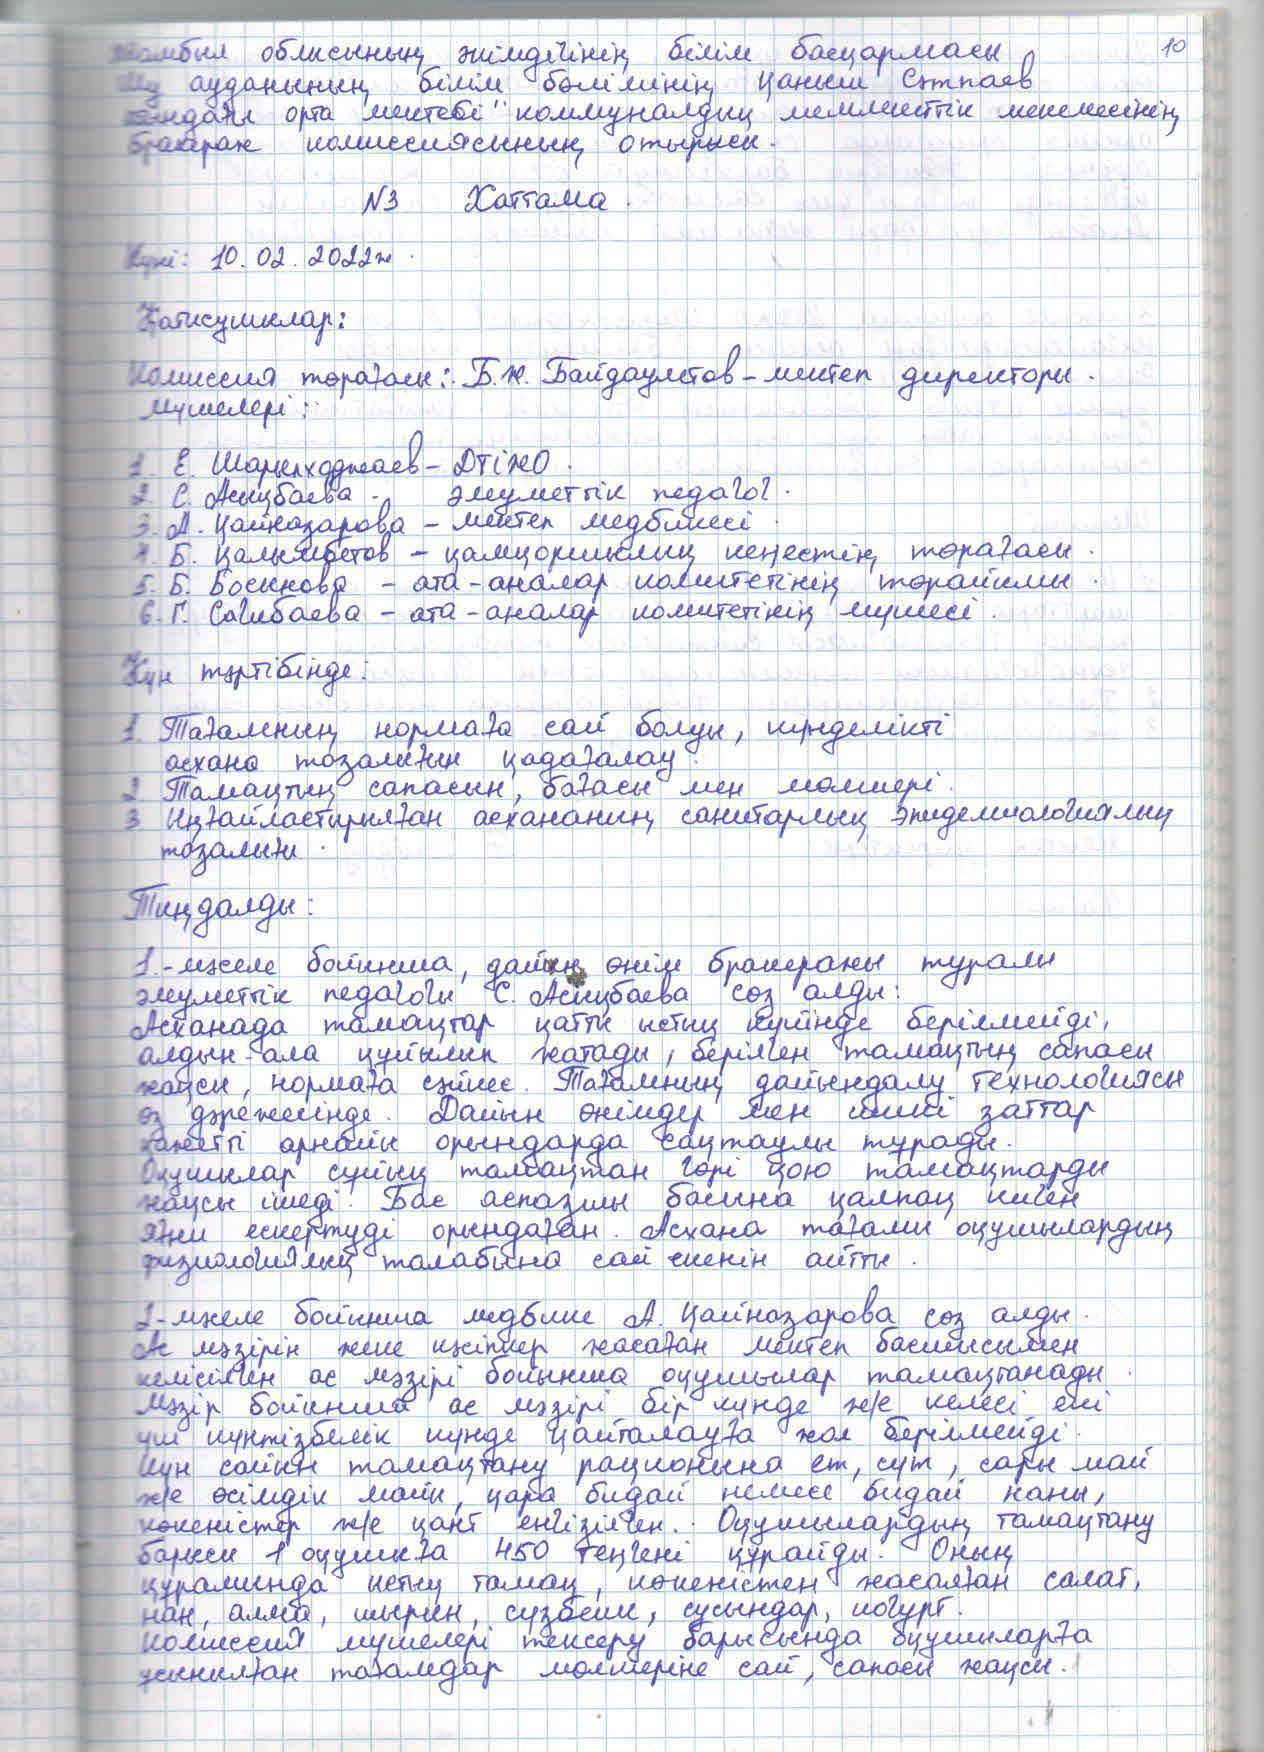 10
Жамбыл облысының әкімдігінің білім басқармасы
Шу ауданының білім бөлімінің Қаныш Сәтпаев
атындағы орта мектебі" коммуналдық мемлекеттік мекемесінің
бракераж комиссиясының отырысы.
№3 Хаттама.
Күні: 10.02.2022ж.
Қатысушылар:
Комиссия төрағасы: Б.Ж. Байдаулетов – мектеп директоры.
Мүшелері:
1. Е. Шарыпходжаев – ДТІЖО.
2. С. Асықбаева - әлеуметтік педагог.
3. А. Қайназарова – мектеп медбикесі.
4. Б. Қалымбетов – қамқоршылық кеңестің төрағасы.
5. Б. Босынова – ата-аналар комитетінің төрайымы.
6. Г. Сагибаева – ата-аналар комитетінің мүшесі.
Күн тәртібінде:
1. Тағамның нормаға сай болуы, күнделікті
асхана тозалығын қадағалау.
2 Тамақтың сапасын, бағасы мен мөлшері.
3 Ыңғайластырылған асхананың санитарлық эпидемиологиялық
тозалығы.
Тыңдалды:
1.-мәселе бойынша, дайын өнім бракеражы туралы
әлеуметтік педагогы С. Асықбаева сөз алды:
Асханада тамақтар қатты ыстық күйінде берілмейді,
алдын-ала құйылып жатады, берілген тамақтың сапасы
жақсы, нормаға сәйкес. Тағамның дайындалу технологиясы
өз дәрежесінде. Дайын өнімдер мен шикі заттар
қажетті арнайы орындарда сақтаулы тұрады.
Оқушылар сұйық тамақтан гөрі қою тамақтарды
жақсы ішеді. Бас аспазшы басына қалпақ киген
яғни ескертуді орындаған. Асхана тағамы оқушылардың
физиологиялық талабына сай екенін айтты.
2-мәселе бойынша медбике А. Қайназарова сөз алды.
Ас мәзірін жеке кәсіпкер жасаған мектеп басшысымен
келісілген ас мәзірі бойынша оқушылар тамақтанады.
Мәзір бойынша ас мәзірі бір күнде ж/е келесі екі
үш күнтізбелік күнде қайталауға жол берілмейді.
Күн сайын тамақтану рационына ет, сүт, сары май
ж/е өсімдік майы, қара бидай немесе бидай наны,
көкеністер ж/е қант енгізілген. Оқушылардың тамақтану
барысы 1 оқушыға 450 теңгені құрайды. Оның
құрамында ыстық тамақ, көкеністен жасалған салат,
нан, алма, шырын, сүзбеше, сусындар, йогурт.
Комиссия мүшелері тексеру барысында оқушыларға
ұсынылған тағамдар мөлшеріне сай, сапасы жақсы.